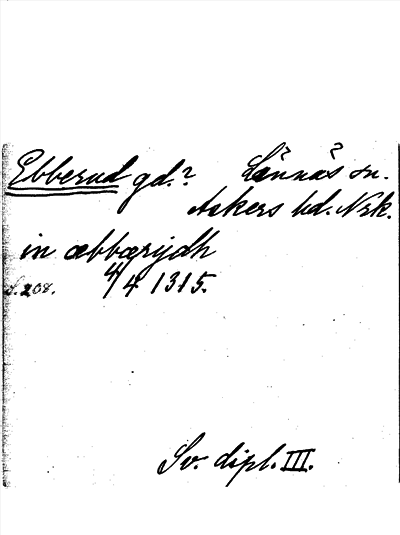 Ebberud gd.? Lännäs sn.
Askers hd. Nrk.
in æbbærydh
S. 208. 4/4 1315.
Sv. dipl. III.